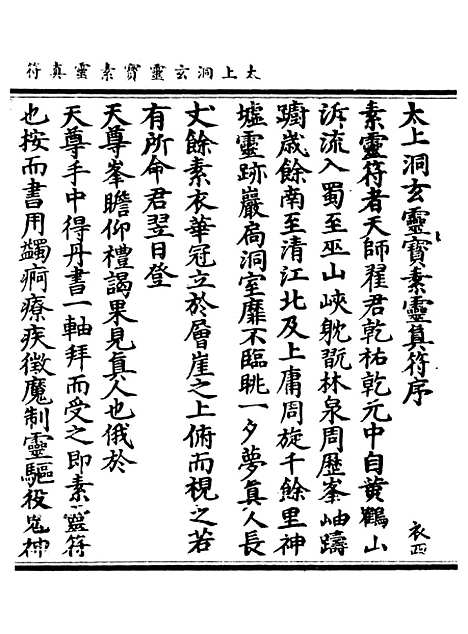 太上洞玄靈寳素靈真符
太上洞玄靈寳素靈真符序
衣四
素靈符者天師翟君乾祐乾元中自黄鶴山
泝流入蜀至巫山峽躭翫林泉周歷峯岫躊
躕歲餘南至清江北及上庸周旋千餘里神
墟靈跡巖扄洞室靡不臨眺一夕夢真人長
丈餘素衣華冠立於層崖之上俯而視之若
有所命君翌日登
天尊峯瞻仰禮謁果見真人也俄於
天尊手中得丹書一軸拜而受之即素靈符
也按而書用蠲痾療疾徵魔制靈驅役鬼神